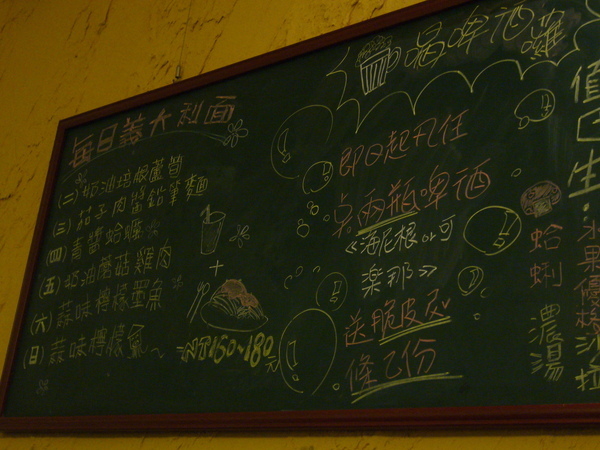 每日義大利面
(二)奶油培根蘆筍
(三)茄子肉醬鉛筆麵
(四)青醬蛤蠣
(五)奶油蘑菇雞肉
(六)蒜味檸檬墨魚
(日)蒜味檸檬魚~
+
NT150~180元
喝啤酒囉
即日起凡任
点兩瓶啤酒
《海尼根or可
樂那》
送脆皮
條乙份
值日生.
水果優格沙拉
蛤蜊濃湯